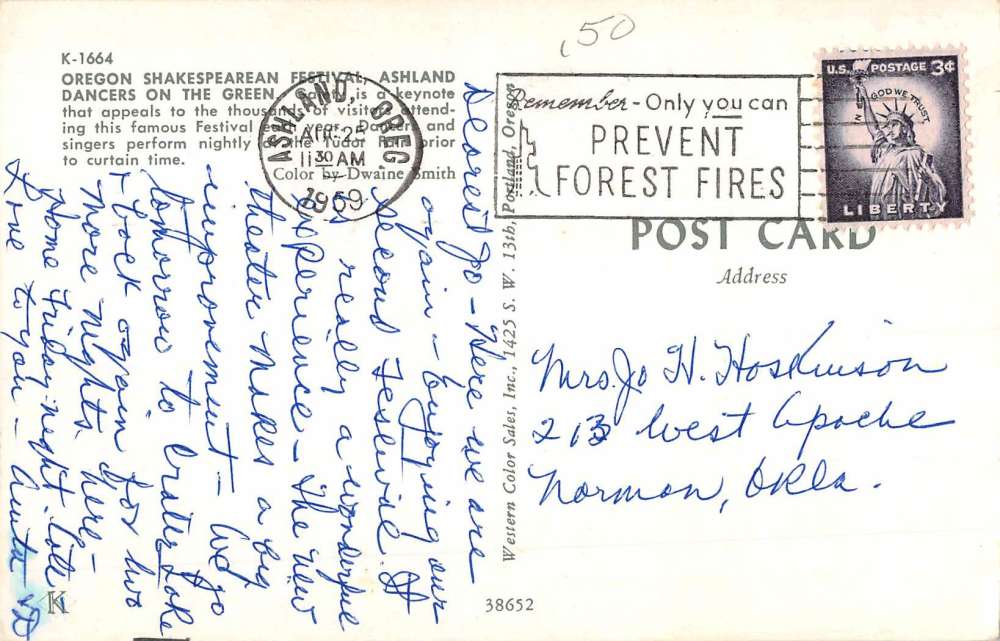 .50
K-1664
OREGON SHAKESPEAREAN FESTIVAL, ASHLAND
DANCERS ON THE GREEN. Gaiety is a keynote
that appeals to the thousands of visitors attend-
ing this famous Festival each year. Dancers and
singers perform nightly on the Tudor Rim prior
to curtain time.
Color by Dwaine Smith
ASHLAND, OREG.
AUG 25
11 30 AM
1959
Remember - Only you can
PREVENT
FOREST FIRES
U.S. POSTAGE 3¢
IN GOD WE TRUST
LIBERTY
POST CARD
Address
Dearest Jo - Here we are
again - Enjoying our
second Festival. It
is really a wonderful
experience - The new
theater makes a big
improvement - We go
tomorrow to Crater Lake
+ back again for two
more nights here -
Home Friday night late
Love to you -
Western Color Sales, Inc., 1425 S. W. 13th, Portland, Oregon
Mrs. Jo H. Hoskinson
213 West Apache
Norman, Okla.
K
38652